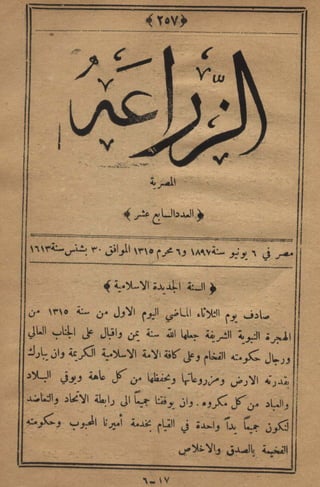 ﴿ ٢٥٧ ﴾
الزراعه
المصرية
﴿ العدد السابع عشر ﴾
مصر في ٦ يونيو سنة ١٨٩٧ و ٦ محرم ١٣١٥ الموافق ٣٠ بشنس سنة ١٦١٣
﴿ السنة الجديدة الاسلامية ﴾
صادف يوم الثلاثاء الماضي اليوم الاول من سنة ١٣١٥ من
الهجرة النبوية الشريفة جعلها الله سنة يمن واقبال على الجناب العالي
ورجال حكومته الفخام وعلى كافة الامة الاسلامية الكريمة وان يبارك
بقدرته الارض ومزروعاتها ويحفظها من كل عاهة ويوفي البلاد
والعباد من كل مكروه . وان يوفقنا جميعاً الى رابطة الاتحاد والتعاضد
لنكون جميعاً يداً واحدة في القيام بخدمة أميرنا المحبوب وحكومته
الفخيمة بالصدق والاخلاص
٦-١٧